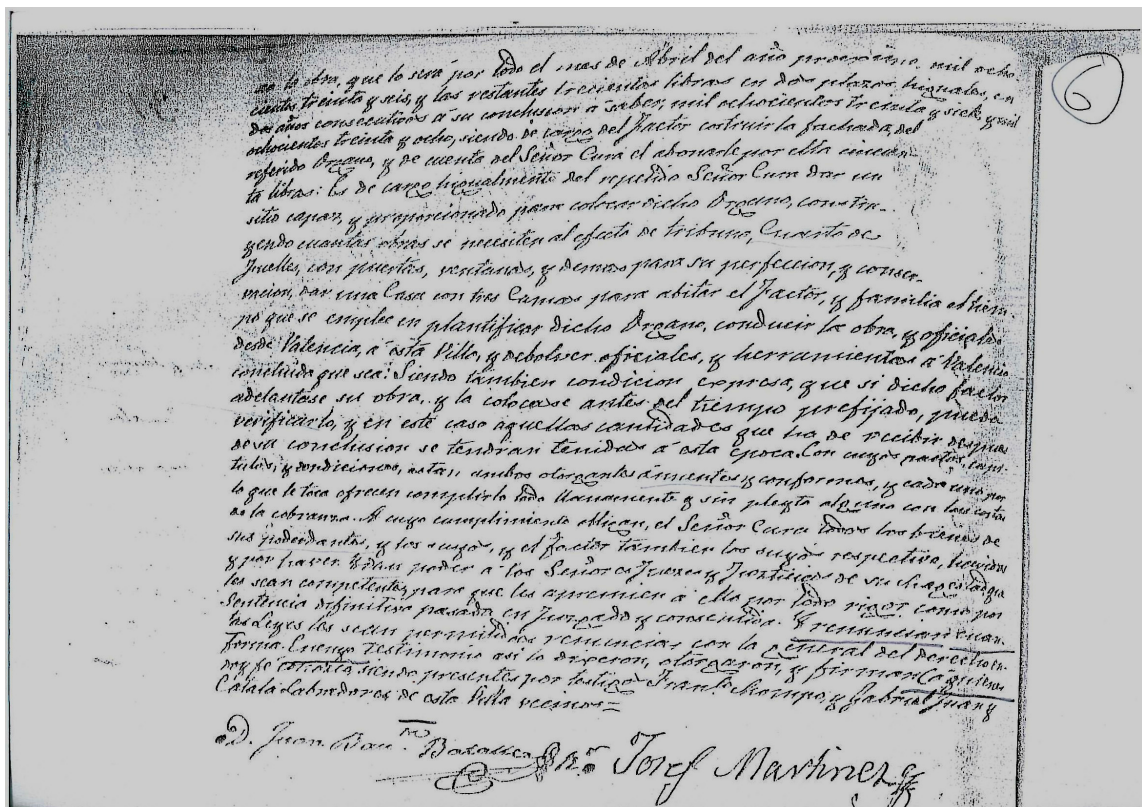 la obra, que lo será por todo el mes de Abril del año proximo, mil ocho-
cientos treinta y seis, y las restantes trecientas libras en dos plazos higuales, en
dos años consecutivos á su conclusion á saber, mil ochocientos treinta y siete, y mil
ochocientos treinta y ocho, siendo de cargo del Factor costruir la fachada, del
referido Organo, y de cuenta del Señor Cura el abonarle por ella cincuen-
ta libras: Es de cargo higualmente del repetido Señor Cura dar un
sitio capaz, y proporcionado para colocar dicho Organo, constru-
yendo cuantas obras se necesiten al efecto de tribuna, Cuarto de
Fuelles, con puertas, ventanas, y demas para su perfeccion, y conser-
vacion, dar una Casa con tres Camas para abitar el Factor, y familia el tiem-
po que se emplee en plantificar dicho Organo, conducir la obra, y oficiales
desde Valencia, á esta Villa, y debolver oficiales, y herramientas á Valencia
concluida que sea: Siendo tambien condicion expresa, que si dicho factor
adelantase su obra, y la colocase antes del tiempo prefijado, pueda
verificarlo, y en este caso aquellas cantidades que ha de recibir despues
de su conclusion se tendran tenidas á esta epoca. Con cuyos pactos, capi-
tulos, y condiciones, estan ambos otorgantes annuentes y conformes, y cada uno por
lo que le toca ofrecen cumplirlo todo llanamente y sin pleyto alguno con las costas
de la cobranza. A cuyo cumplimiento obligan, el Señor Cura todos los bienes de
sus poderdantes, y los suyos, y el factor tambien los suyos respective, havidos
y por haver. Y dan poder á los Señores Jueces y Justicias de su Magestad que
les sean competentes para que les apremien á ello por todo rigor como por
Sentencia difinitiva pasada en Juzgado y consentida. Y renuncian cuan-
tas Leyes les sean permitidas renunciar con la general del derecho en
forma. En cuyo testimonio asi lo dixeron, otorgaron, y firman (a quienes
doy fé conozco) siendo presentes por testigos Fran.co Gabriel Juan y
Catalá Labradores de esta Villa vecinos=
D. Juan Bau.ta Josef Martinez
6